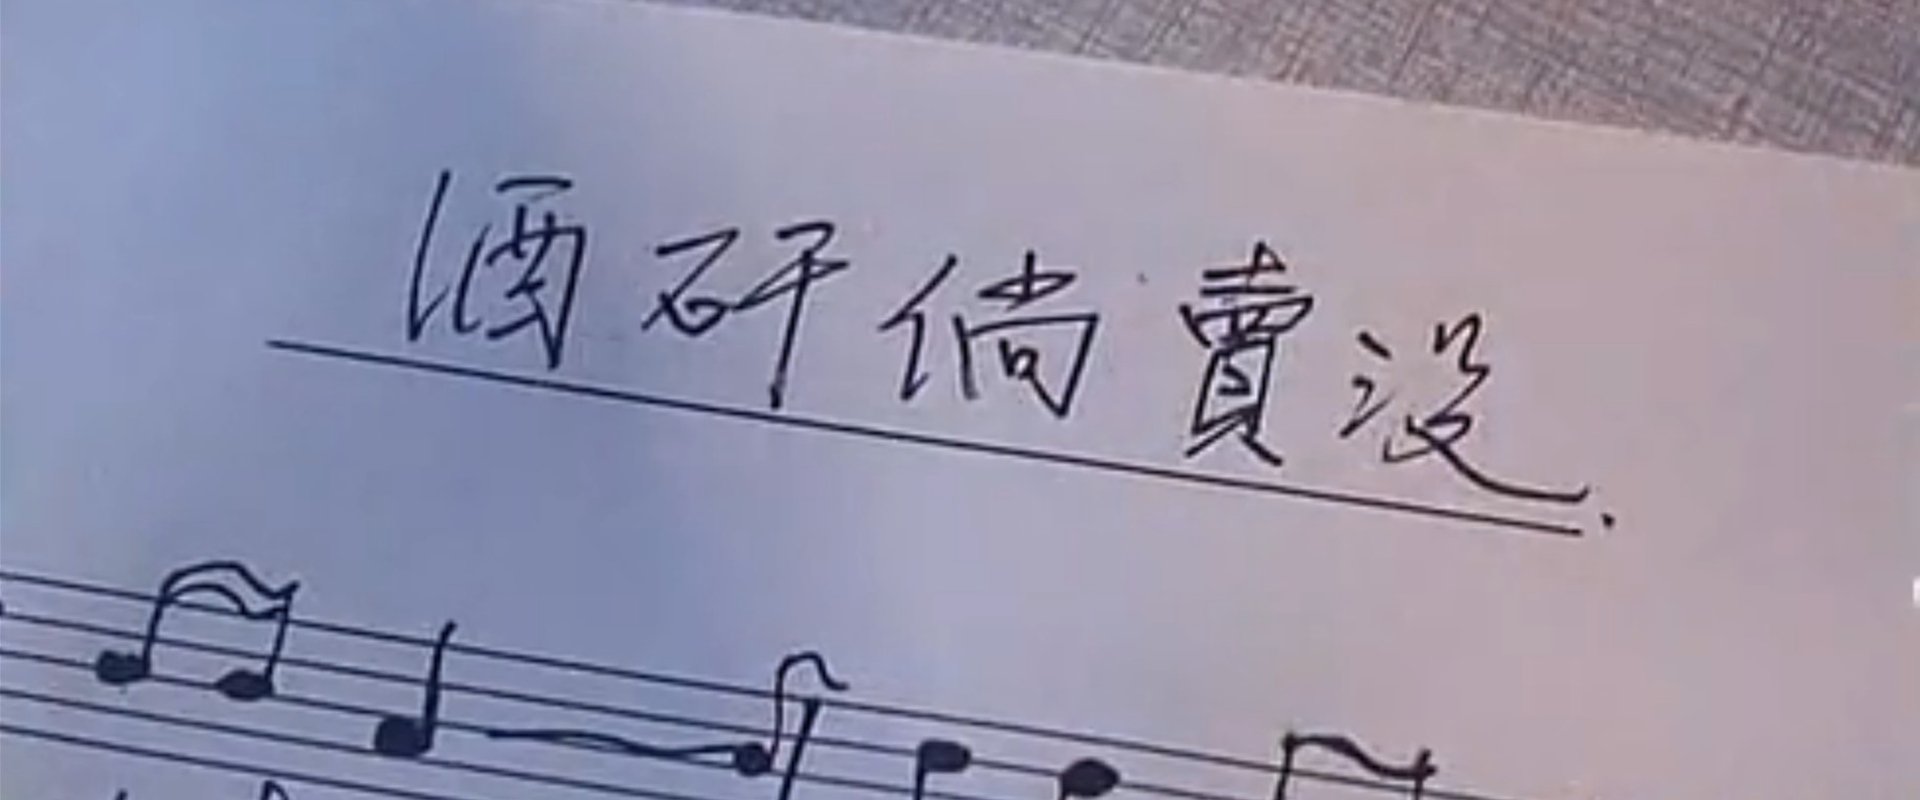 酒矸倘賣沒